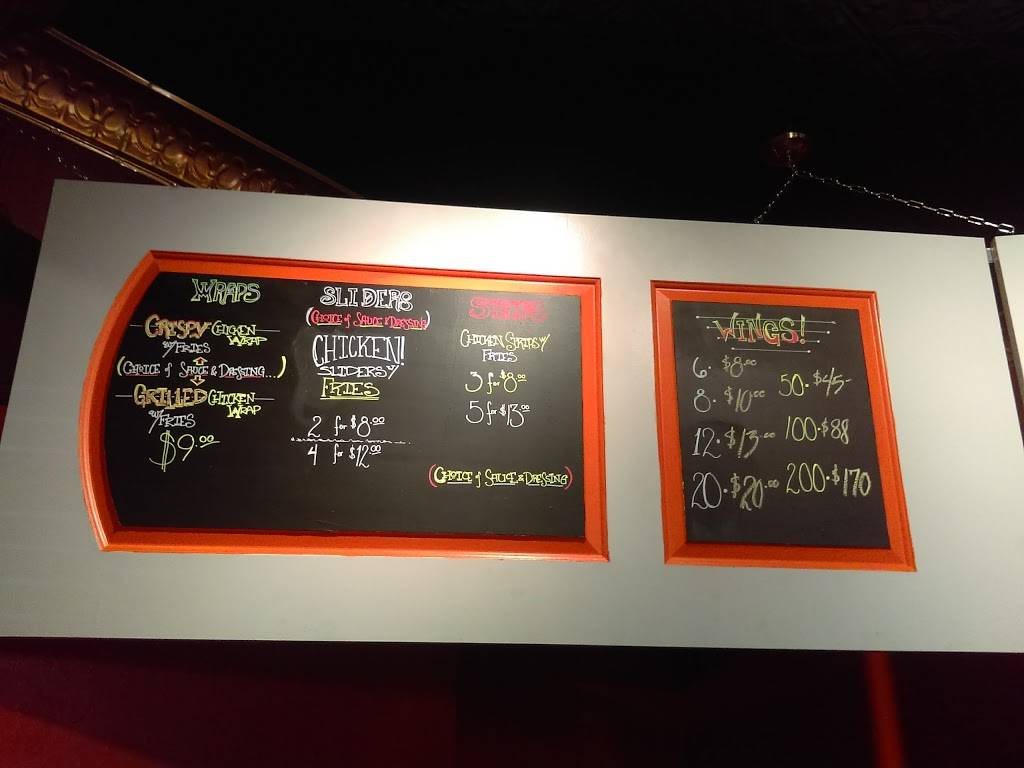 WRAPS
CRISPY CHICKEN WRAP
w/ FRIES
(CHOICE of SAUCE & DRESSING...)
GRILLED CHICKEN WRAP
w/ FRIES
$9.00
SLIDERS
(CHOICE of SAUCE & DRESSING)
CHICKEN!
SLIDERS w/
FRIES
2 for $8.00
4 for $12.00
STRIPS
CHICKEN STRIPS w/
FRIES
3 for $8.00
5 for $13.00
(CHOICE of SAUCE & DRESSING)
WINGS!
6 · $8.00
8 · $10.00
12 · $13.00
20 · $20.00
50 · $45-
100 · $88
200 · $170